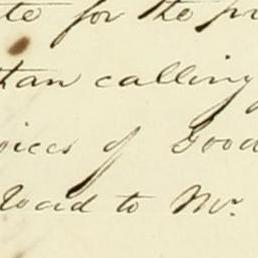 te for the pr
than calling
oices of Good
Road to Mr.